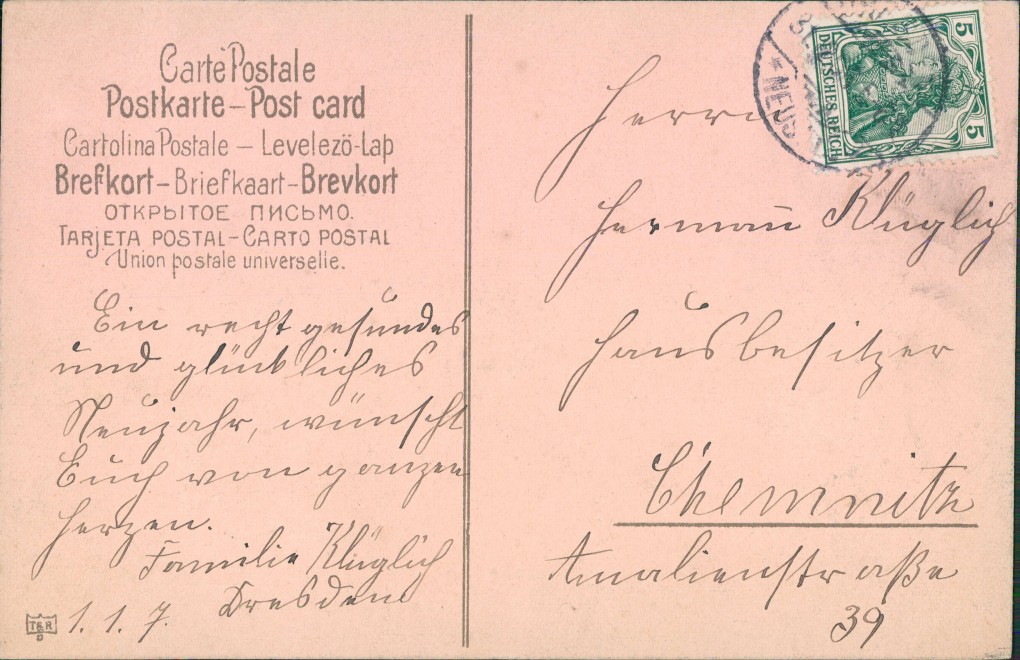 Carte Postale
Postkarte – Post card
Cartolina Postale – Levelezö-Lap
Brefkort – Briefkaart – Brevkort
ОТКРЫТОЕ ПИСЬМО.
TARJETA POSTAL – CARTO POSTAL
Union postale universelle.
Ein recht gesundes
und glückliches
Neujahr, wünscht
Euch von ganzen
Herzen.
Familie Klüglich
Dresden
1. 1. 7.
T&R
D
5
DEUTSCHES REICH
5
* NEUS
Herrn
Hermann Klüglich
Hausbesitzer
Chemnitz
Amalienstraße
39